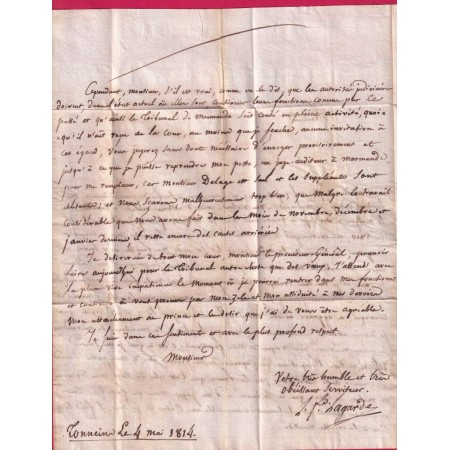 Cependant, monsieur, s'il est vrai, comme on le dit, que les autorités judiciaires
doivent, dans l'état actuel où elles sont continuer leurs fonctions comme par le
passé et qu'ainsi le Tribunal de Marmande soit censé en pleine activité, quoi-
qu'il n'ait reçu de la Cour, au moins que je sache, aucune invitation à
cet égard, vous jugerez sans doute nécessaire d'envoyer provisoirement et
jusqu'à ce que je puisse reprendre mon poste, un juge auditeur à Marmande
pour me remplacer, car monsieur Delage est seul et les suppléants sont
absents; et nous savons malheureusement trop bien, que malgré le travail
considérable que nous avons fait dans les mois de novembre, décembre et
janvier derniers il reste encore des causes arriérées
Je désirerais de tout mon cœur, monsieur le procureur Général, pouvoir
faire aujourd'hui pour le Tribunal autre chose que des vœux. J'attends avec
la plus vive impatience le moment où je pourrai rentrer dans mes fonctions
et continuer à vous prouver par mon zèle et mon assiduité à mes devoirs
mon attachement au prince et le désir que j'ai de vous être agréable.
Je suis dans ces sentiments et avec le plus profond respect
Monsieur
Votre très humble et très
obéissant serviteur.
Lagarde
Tonneins Le 4 mai 1814.